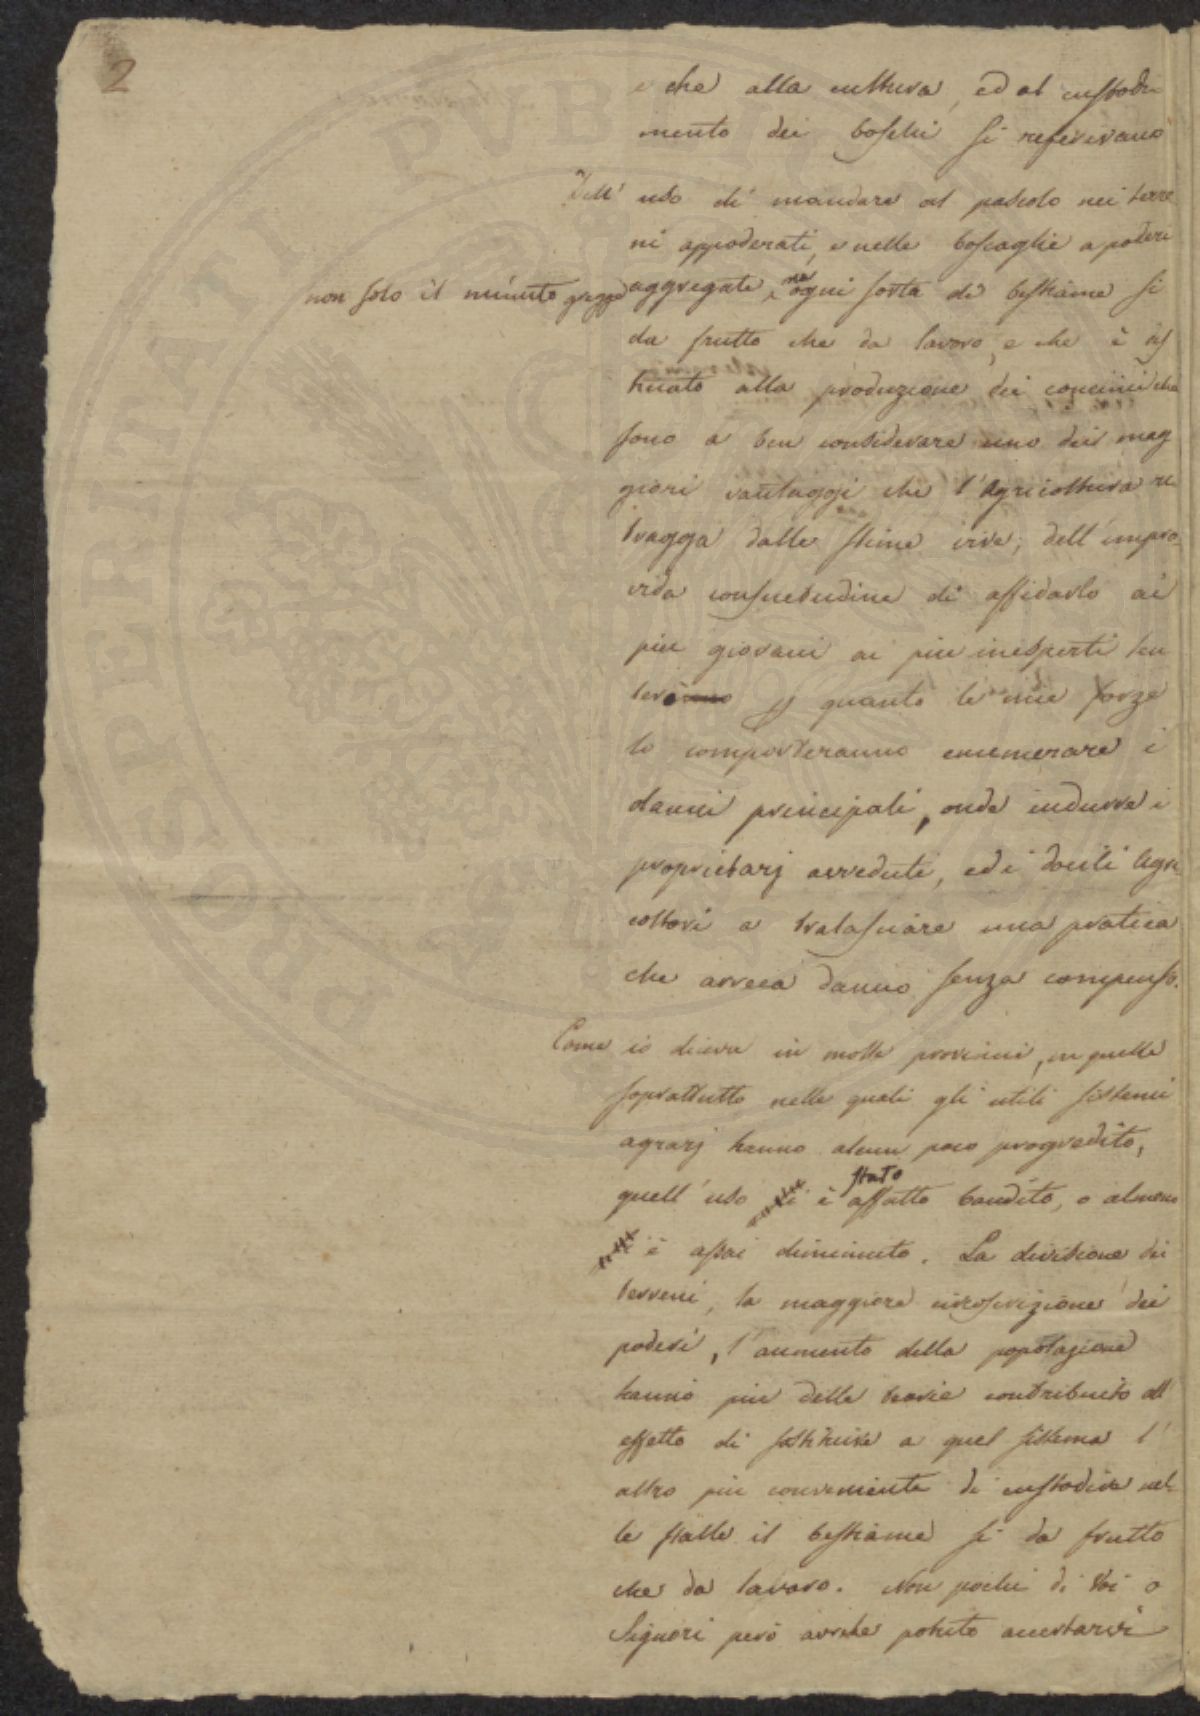 2
e che alla cultura, ed al custodi
mento dei boschi si referivano
Dell' uso di mandare al pascolo nei terre
ni appoderati, e nelle boscaglie a poderi
non solo il minuto gregge aggregate, ma ogni sorta di bestiame si
da frutto che da lavoro, e che è des
tinato alla produzione dei concimi che
sono a ben considerare uno dei mag
giori vantaggi che l'Agricoltura ri
tragga dalle stime vive; dell'impro
vida consuetudine di affidarlo ai
più giovani ai più inesperti ten
terò quanto le mie forze
lo comporteranno enumerare i
danni principali, onde indurre i
proprietarj avveduti, ed i docili Agri
coltori a tralasciare una pratica
che arreca danno senza compenso.
Come io diceva in molte provincie, in quelle
soprattutto nelle quali gli utili sistemi
agrarj hanno alcun poco progredito,
quell'uso è stato affatto bandito, o almeno
è assai diminuito. La divisione dei
terreni, la maggiore circoscrizione dei
poderi, l'aumento della popolazione
hanno più delle teorie contribuito all
effetto di sostituire a quel sistema l'
altro più conveniente di custodire nel
le stalle il bestiame si da frutto
che da lavoro. Non pochi di Voi o
Signori però avrete potuto accertarvi
PUBLI
PROSPERITATI